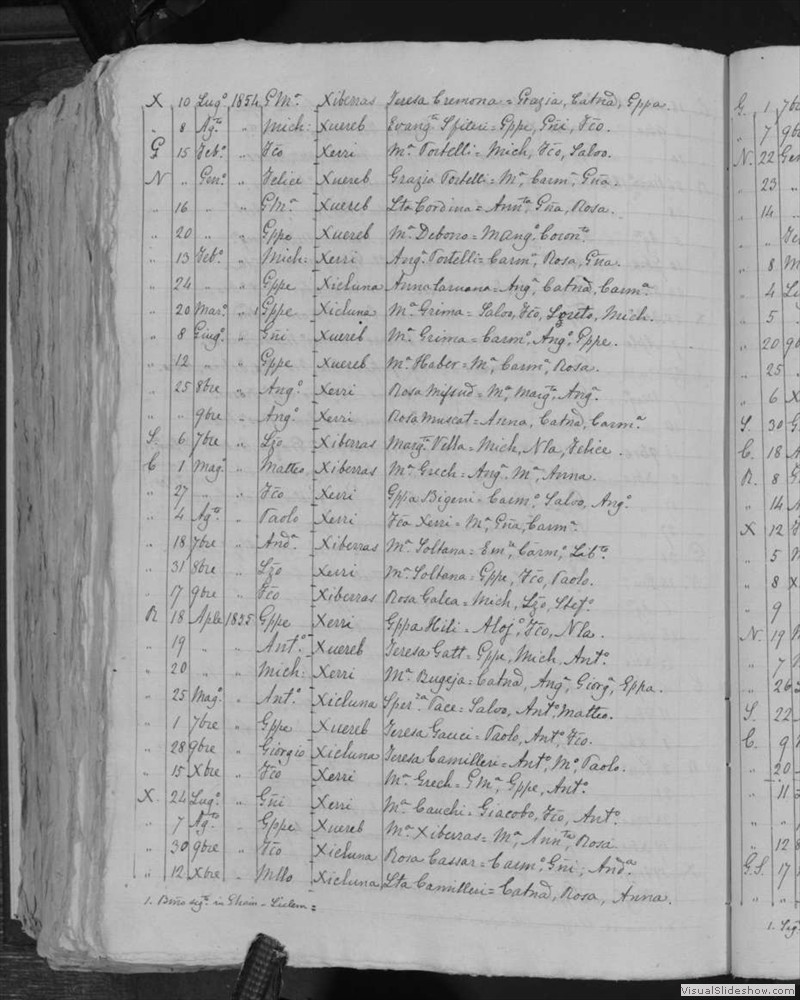 X 10 Lugo 1854 GMa Xiberras Teresa Cremona = Grazia, Catna, Gppa.
" 8 Agto " Mich: Xuereb Evanga Spiteri = Gppe, Gni, Fco.
G 15 Febo " Fco Xerri Ma Portelli = Mich, Fco, Salvo.
N " Gno " Felice Xuereb Grazia Portelli = Ma, Carma, Gna.
" 16 " " GMa Xuereb Lta Cordina = Annta, Gna, Rosa.
" 20 " " Gppe Xuereb Ma Debono = Mango, Coronta
" 13 Febo " Mich: Xerri Anga Portelli = Carma, Rosa, Gna.
" 24 " " Gppe Xicluna Anna Caruana = Anga, Catna, Carma.
" 20 Maro " 1 Gppe Xicluna Ma Grima = Salvo, Fco, Loreto, Mich.
" 8 Giugo " Gni Xuereb Ma Grima = Carmo, Ango, Gppe.
" 12 " " Gppe Xuereb Ma Haber = Ma, Carma, Rosa.
" 25 8bre " Ango Xerri Rosa Mifsud = Ma, Marga, Anga.
" " 9bre " Ango Xerri Rosa Muscat = Anna, Catna, Carma.
S. 6 7bre " Lzo Xiberras Marga Vella = Mich, Nla, Felice.
C 1 Mago " Matteo Xiberras Ma Grech = Anga, Ma, Anna.
" 27 " " Fco Xerri Gppa Bigeni = Carmo, Salvo, Ango.
" 4 Agto " Paolo Xerri Fca Xerri = Ma, Gna, Carma.
" 18 7bre " Anda Xiberras Ma Soltana = Carmo,
" 31 8bre " Lzo Xerri Ma Soltana = Gppe, Fco, Paolo.
" 17 9bre " Fco Xiberras Rosa Galea = Mich, Lzo, Stefo.
R 18 Aple 1855 Gppe Xerri Gppa Hili = Alojo, Fco, Nla.
" 19 " " Anto Xuereb Teresa Gatt = Gppe, Mich, Anto.
" 20 " " Mich: Xerri Ma Bugeja = Catna, Anga, Giorga, Gppa.
" 25 Mago " Anto Xicluna Sperza Pace = Salvo, Anto, Matteo.
" 1 7bre " Gppe Xuereb Teresa Gauci = Paolo, Anto, Fco.
" 28 9bre " Giorgio Xicluna Teresa Camilleri = Anto, Mo, Paolo.
" 15 Xbre " Fco Xerri Ma Grech = GMa, Gppe, Anto.
X. 24 Lugo " Gni Xerri Ma Cauchi = Giacobo, Fco, Anto.
" 7 Agto " Gppe Xuereb Ma Xiberras = Ma, Annta, Rosa
" 30 9bre " Fco Xicluna Rosa Cassar = Carmo, Gni, Anda.
" 12 Xbre " Mllo Xicluna Lta Camilleri = Catna, Rosa, Anna.
1. in Ghain
G. 1 7bre
" 7 9bre
N. 22 Gen
" 23 "
" 14 "
" "
" 8 M
" 4
" 5
" 20 9b
" 25 "
" 6 X
S. 30 G
C. 18 A
R. 8 G
" 14 A
X 12
" 5 M
" 8 X
" 9
N. 19
" 7
" 26
S. 22
C. 9
" 20
" 11
" "
" 12
G.S. 17
" "
VisualSlideshow.com